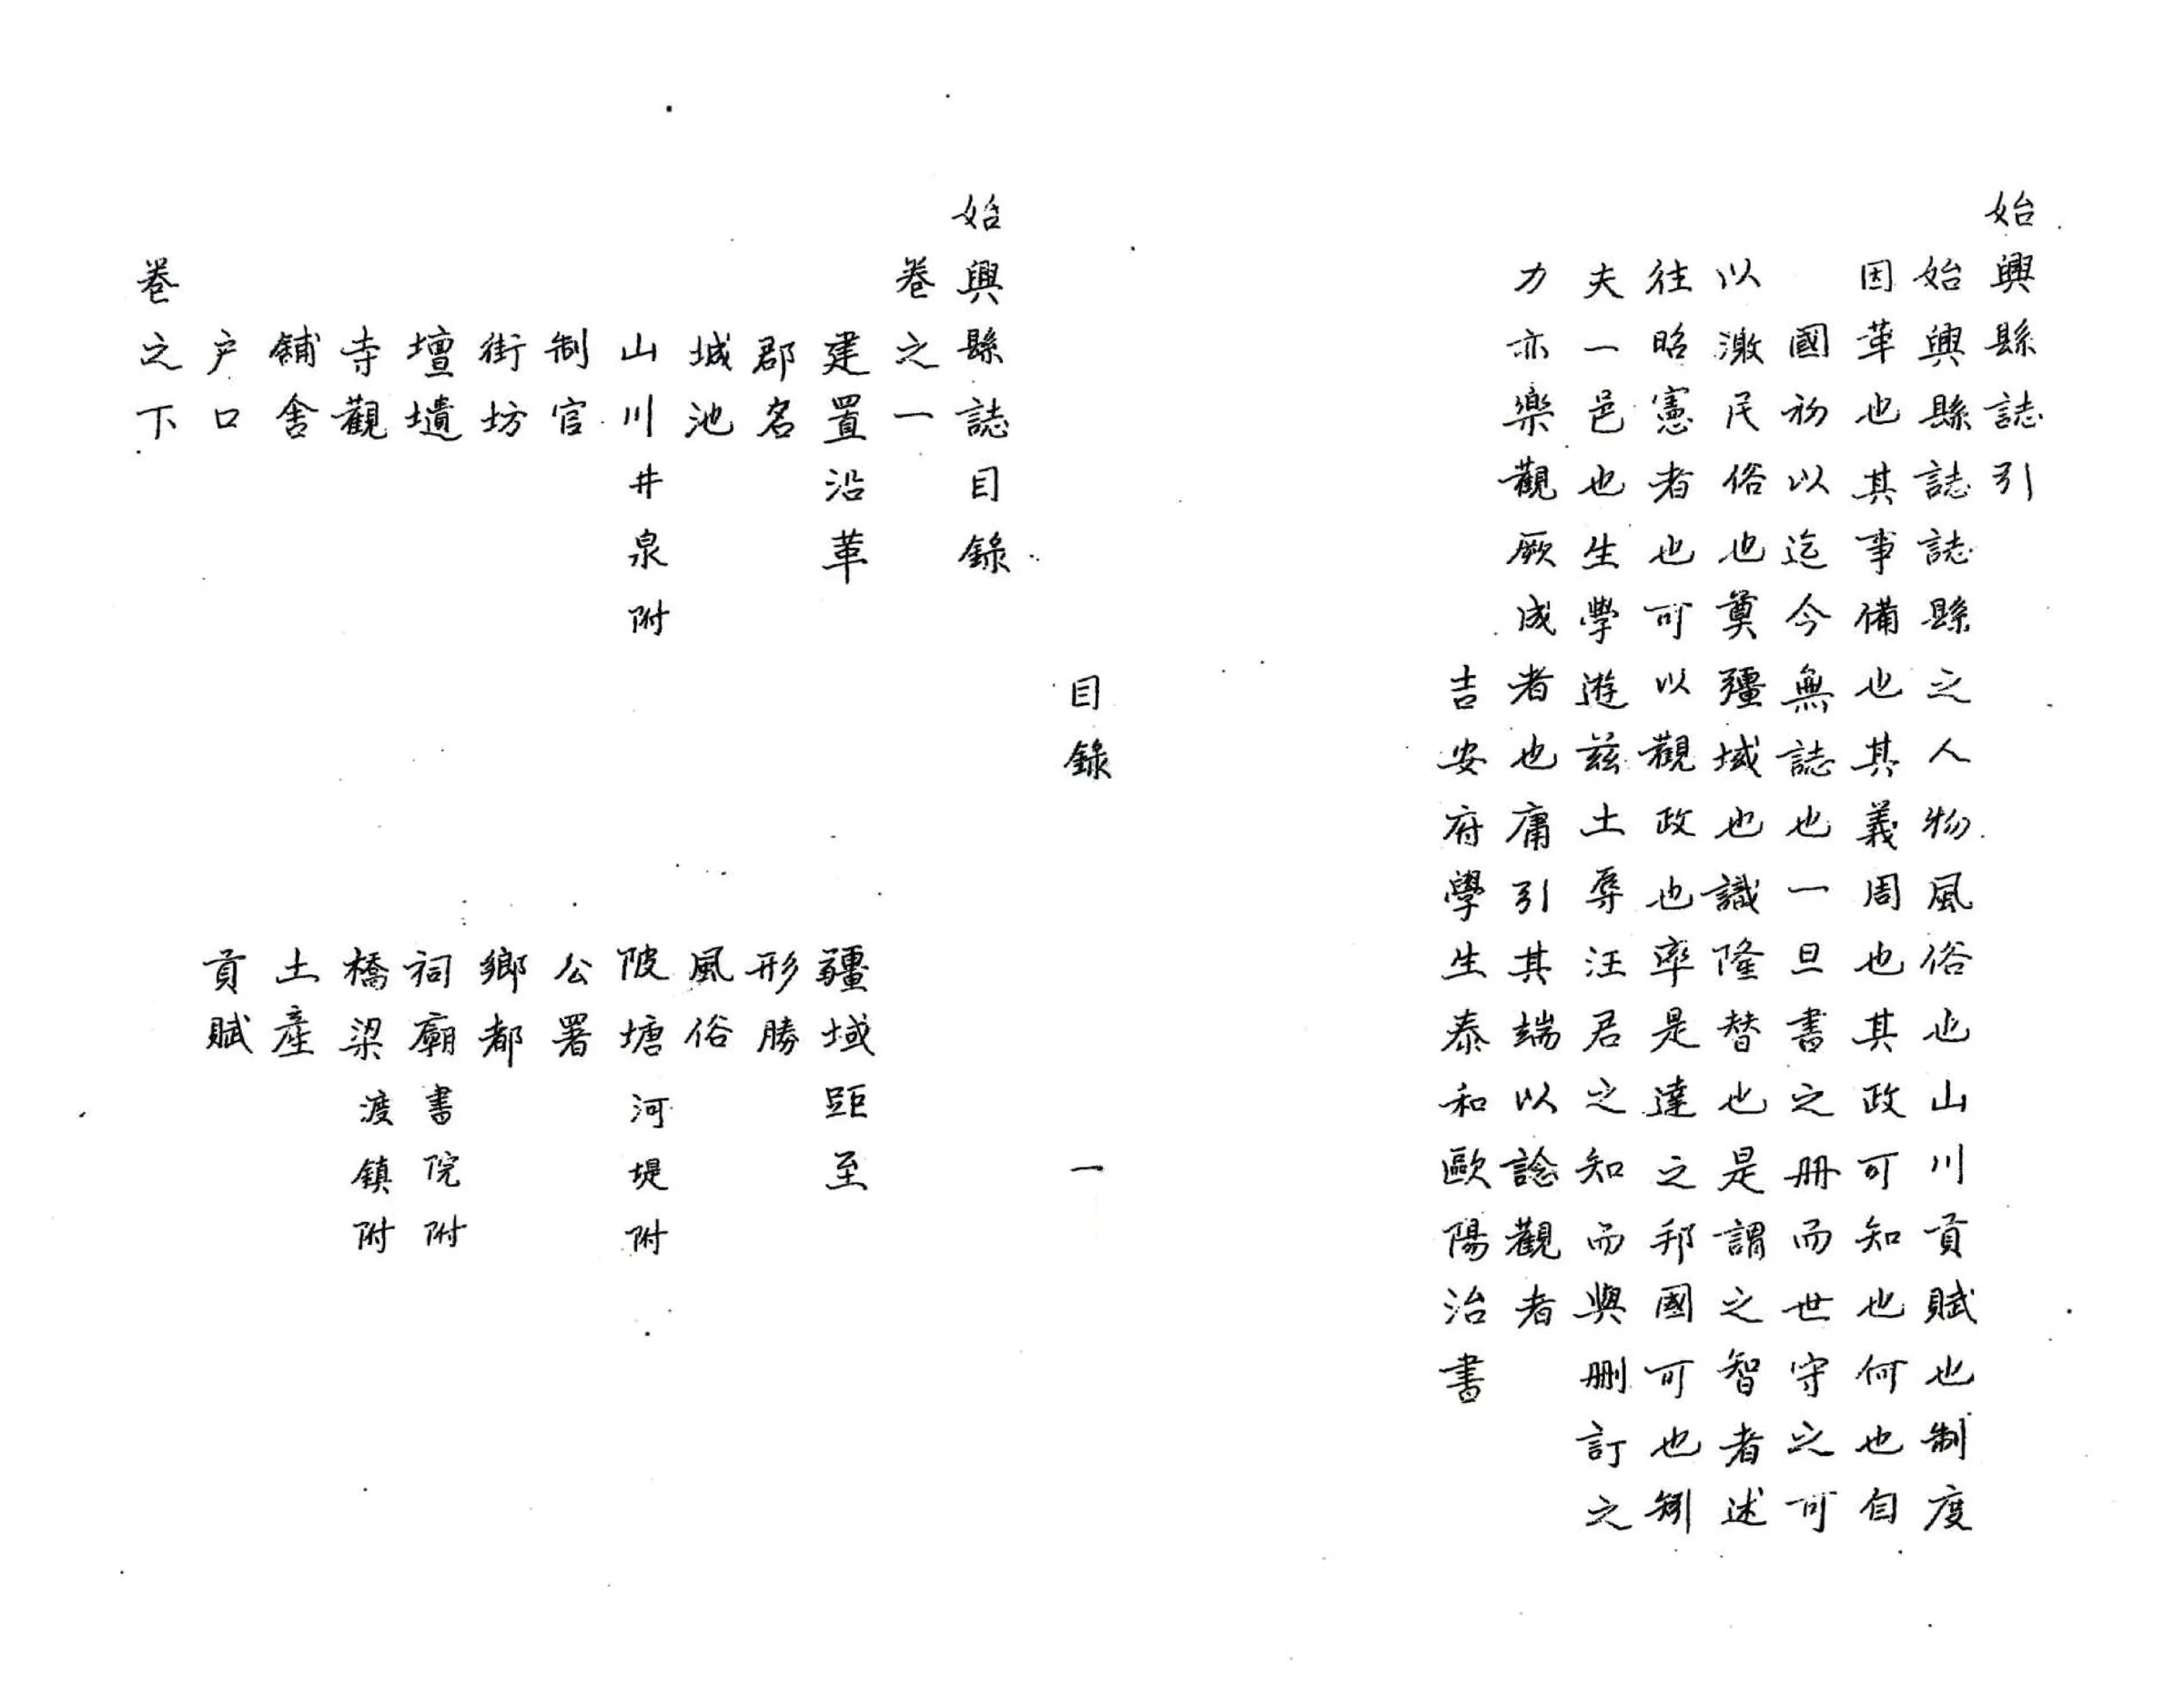 始興縣誌引
始興縣誌誌縣之人物風俗也山川貢賦也制度
因革也其事備也其義周也其政可知也何也自
國初以迄今無誌也一旦書之冊而世守之可
以激民俗也奠疆域也識隆替也是謂之智者述
往昭憲者也可以觀政也率是達之邦國可也矧
夫一邑也生學遊茲土辱汪君之知而與刪訂之
力亦樂觀厥成者也庸引其端以諗觀者
吉安府學生泰和歐陽治書
目錄 一
始興縣誌目錄
卷之一
建置沿革 疆域距至
郡名 形勝
城池 風俗
山川井泉附 陂塘河堤附
制官 公署
街坊 鄉都
壇壝 祠廟書院附
寺觀 橋梁渡鎮附
舖舍 土產
户口 貢賦
卷之下